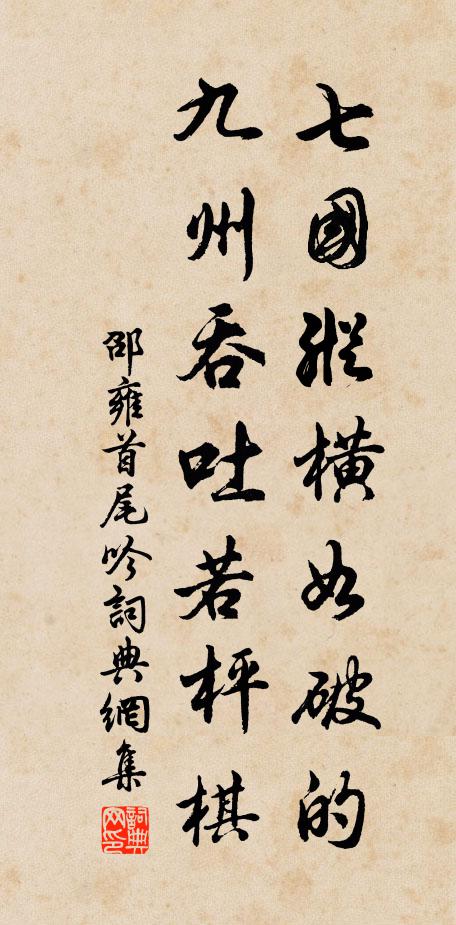 七國縱橫如破的
九州吞吐若枰棋
邵雍首尾吟詞典網集
詞典网印